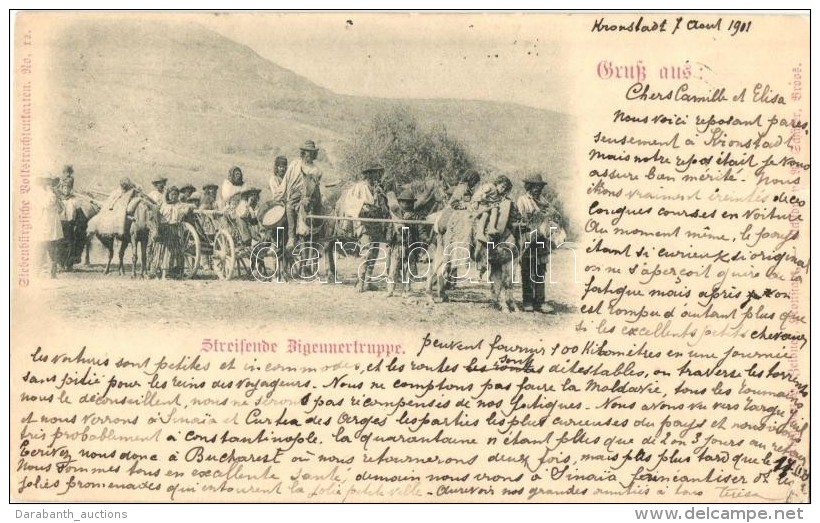 Kronstadt 7 Aout 1901
Gruß aus:
Siebenbürgische Volkstrachtenkarten. No. 12.
Chers Camille et Elisa
Nous voici reposant pares-
seusement à Kronstadt
Mais notre repos était je vous
assure bien mérité. Nous
étions vraiment éreintés de ces
longues courses en voiture
Au moment même, le pays
étant si curieux & si original
on ne s'aperçoit guère de la
fatigue mais après, on
est rompu d'autant plus que
si les excellents petits chevaux
Streifende Zigeunertruppe.
peuvent fournir 100 Kilomètres en une journée
les voitures sont petites et incommodes, et les routes sont détestables, on traverse les torrents
sans pitié pour les reins des voyageurs. Nous ne comptons pas faire la Moldavie, tous les
nous le déconseillent, nous ne serons pas récompensés de nos fatigues. Nous avons vu vers
et nous verrons à Sinaïa et Curtea des Arges les parties les plus curieuses du pays et nous
très probablement à Constantinople. la quarantaine n'étant plus que de 2 ou 3 jours au retour
Ecrivez nous donc à Bucharest où nous retournerons deux fois, mais pas plus tard que le
Nous sommes tous en excellente santé, demain nous irons à Sinaïa
jolies promenades qui entourent la jolie petite ville - Aurevoir nos grandes amitiés à tous
darabanth
Darabanth_auctions
http://www.delcampe.net